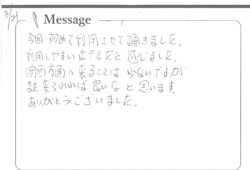 Message
今回初めて利用させて頂きました。
利用しやすいホテルだと感じました。
関西方面へ来ることは少ないですが
また来れれば良いなと思います。
ありがとうございました。